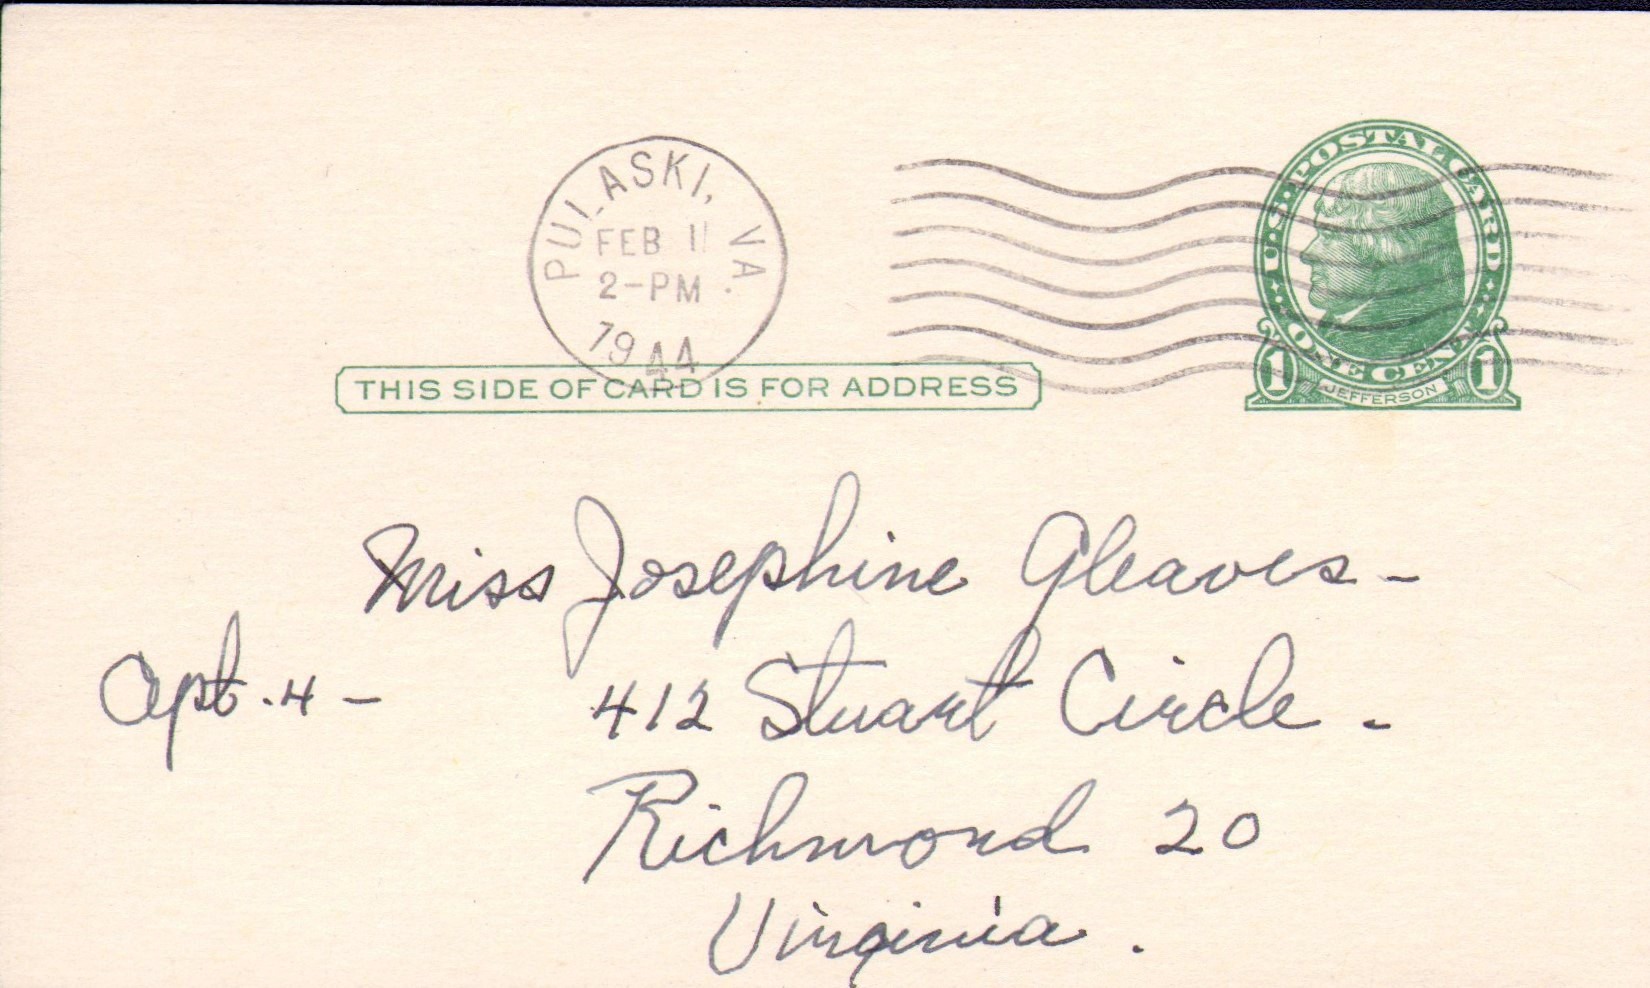 PULASKI, VA.
FEB 11
2-PM
1944
U.S. POSTAL CARD
1 ONE CENT 1
JEFFERSON
THIS SIDE OF CARD IS FOR ADDRESS
Miss Josephine Gleaves -
Apt. 4 - 412 Stuart Circle -
Richmond 20
Virginia.